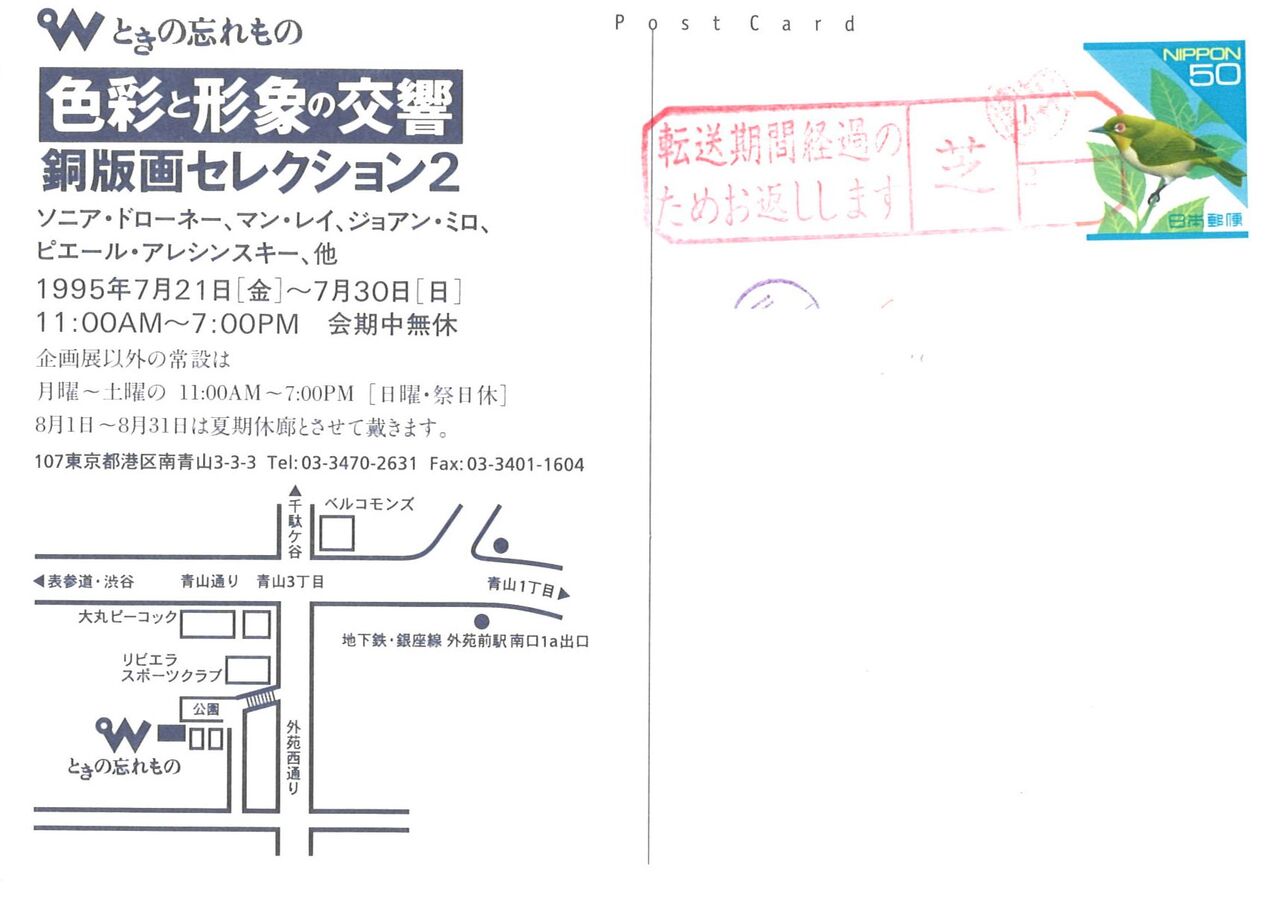 ときの忘れもの
色彩と形象の交響
銅版画セレクション2
ソニア・ドローネー、マン・レイ、ジョアン・ミロ、
ピエール・アレシンスキー、他
1995年7月21日[金]〜7月30日[日]
11:00AM〜7:00PM 会期中無休
企画展以外の常設は
月曜〜土曜の 11:00AM〜7:00PM [日曜・祭日休]
8月1日〜8月31日は夏期休廊とさせて戴きます。
107東京都港区南青山3-3-3 Tel:03-3470-2631 Fax:03-3401-1604
▲千駄ケ谷
ベルコモンズ
◀表参道・渋谷
青山通り
青山3丁目
青山1丁目▶
大丸ピーコック
地下鉄・銀座線 外苑前駅 南口1a出口
リビエラ
スポーツクラブ
公園
外苑西通り
ときの忘れもの
PostCard
NIPPON
50
日本郵便
転送期間経過の
ためお返しします
芝